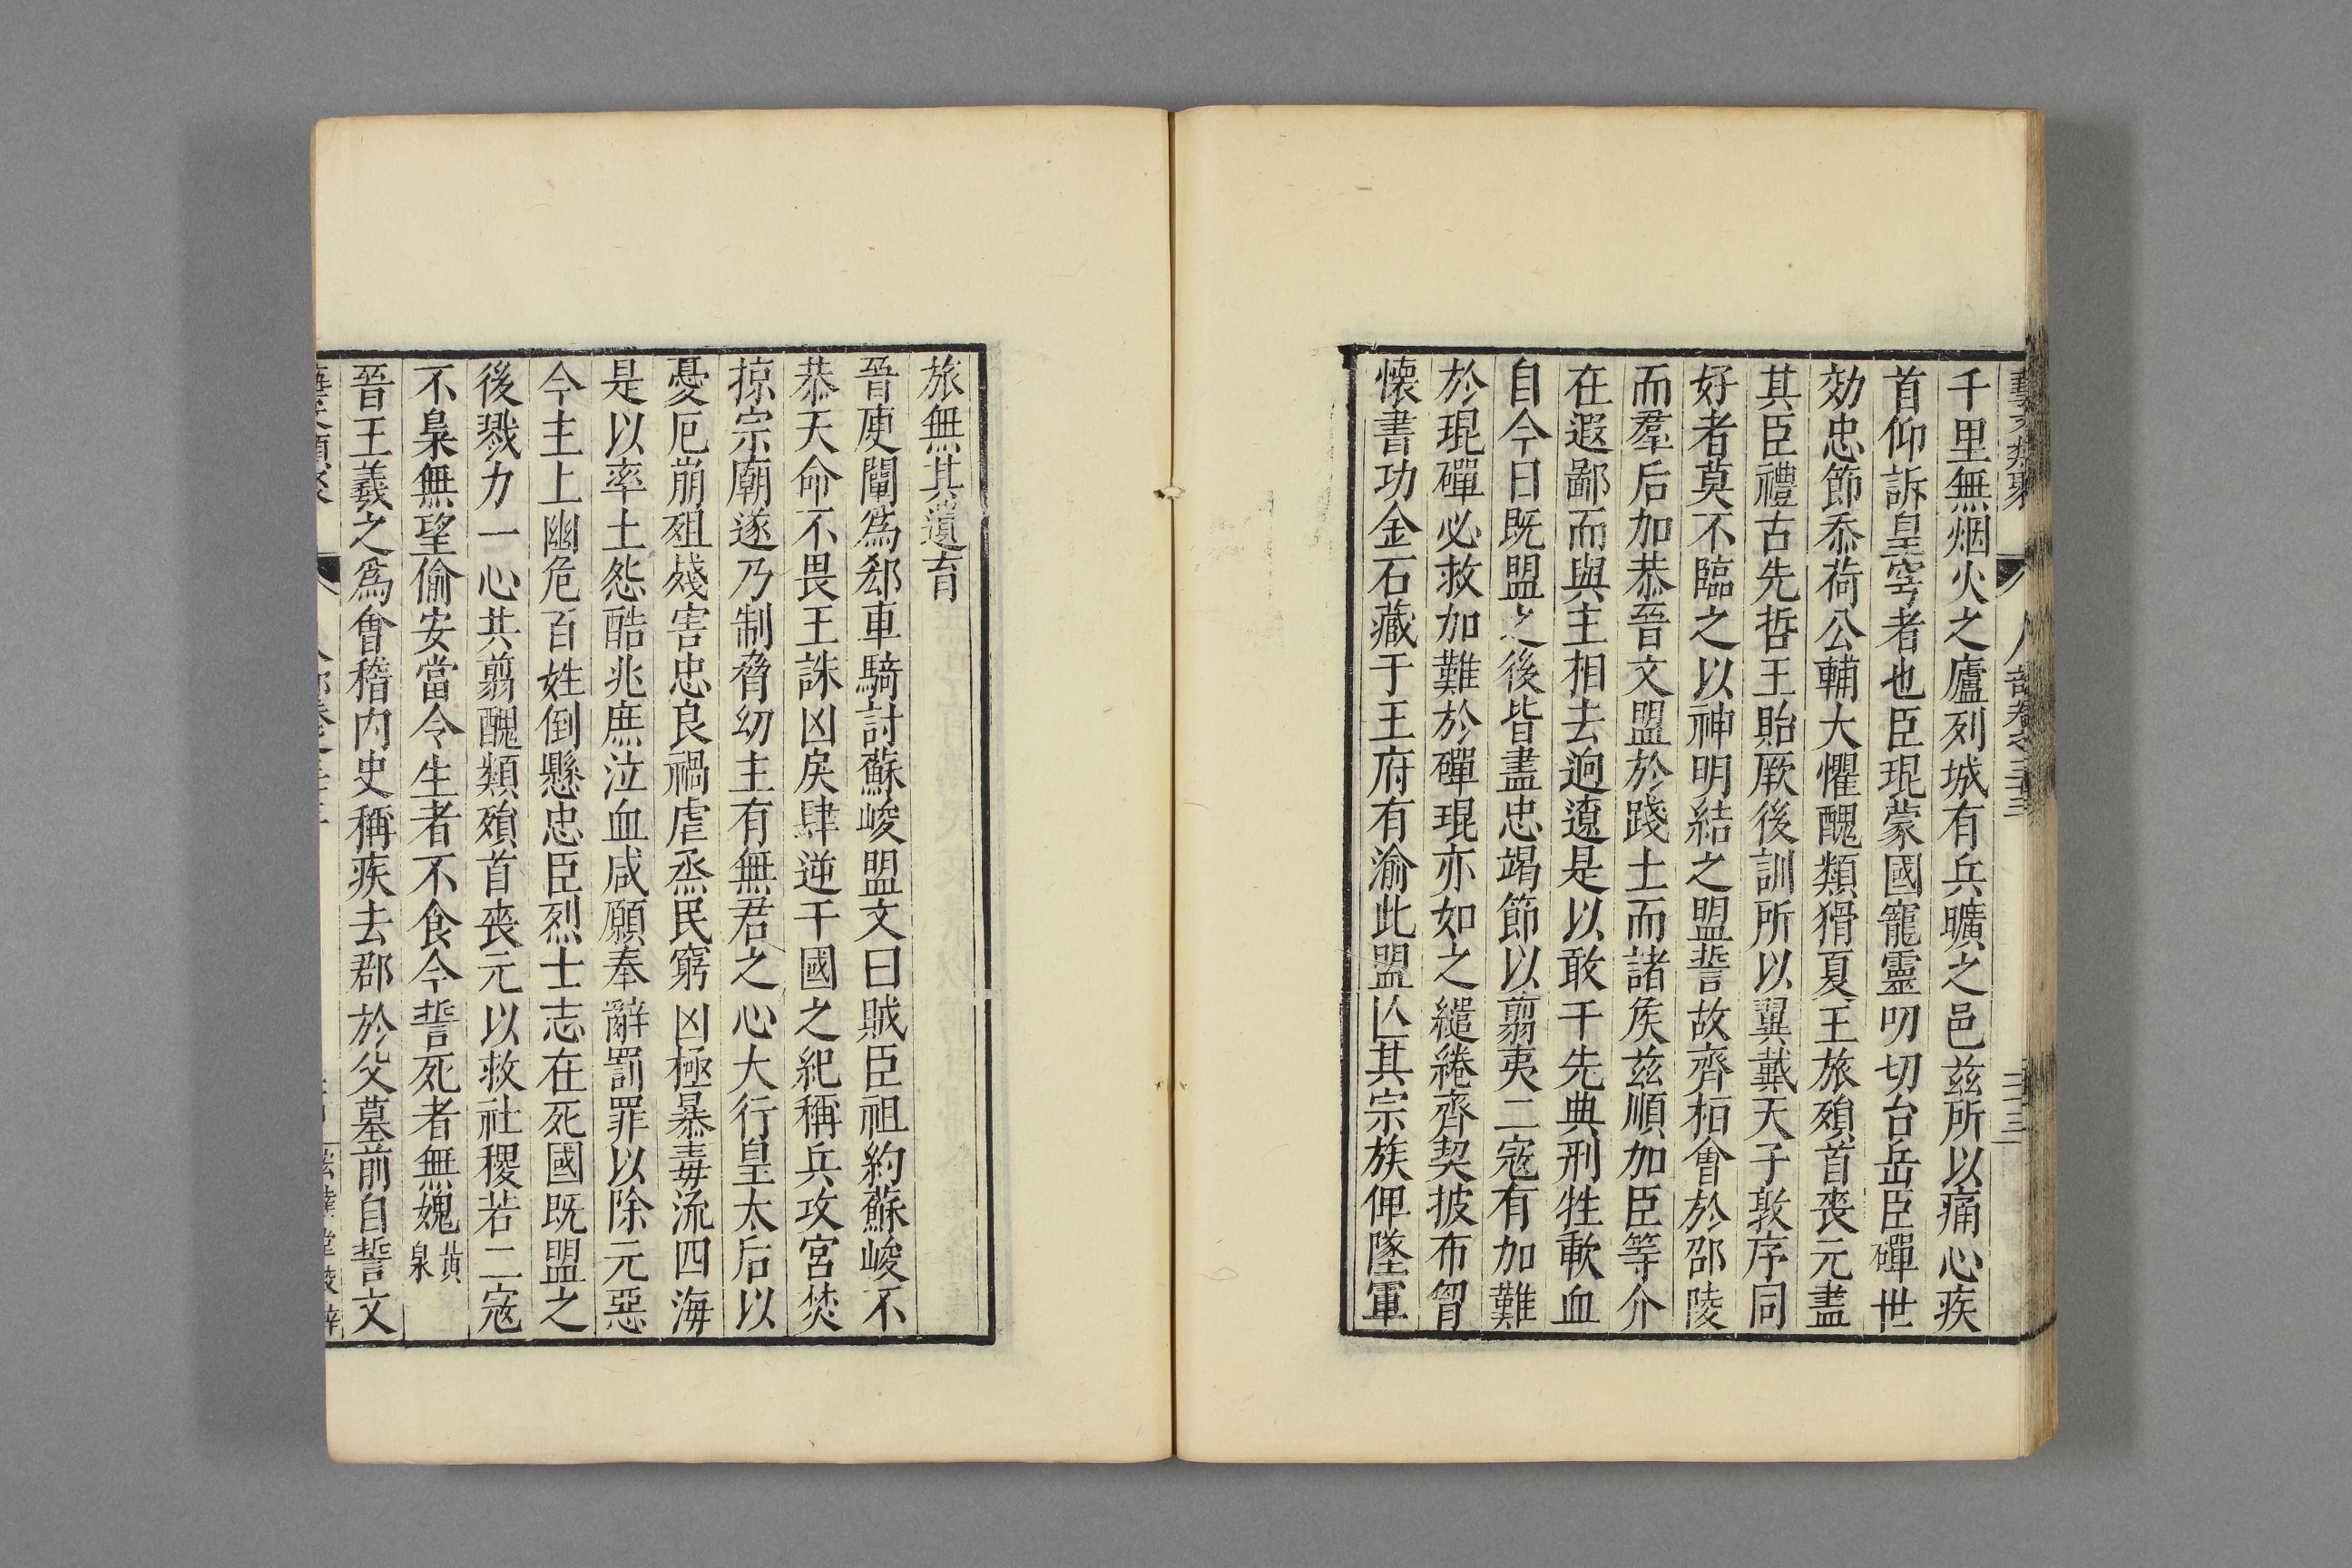 千里無烟火之廬列城有兵曠之邑茲所以痛心疾
首仰訴皇穹者也臣琨蒙國寵靈叨切台岳臣磾世
効忠節忝荷公輔大懼醜類猾夏王旅殞首喪元盡
其臣禮古先哲王貽厥後訓所以翼戴天子敦序同
好者莫不臨之以神明結之盟誓故齊栢會於邵陵
而羣后加恭晉文盟於踐土而諸侯茲順加臣等介
在遐鄙而與主相去逈遼是以敢干先典刑牲歃血
自今日既盟之後皆盡忠竭節以翦夷二寇有加難
於琨磾必救加難於磾琨亦如之繾綣齊契披布胷
懷書功金石藏于王府有渝此盟亾其宗族俾墜軍
旅無其遺育
晉庾闡為郄車騎討蘇峻盟文曰賊臣祖約蘇峻不
恭天命不畏王誅凶戾肆逆干國之紀稱兵攻宮焚
掠宗廟遂乃制脅幼主有無君之心大行皇太后以
憂厄崩殂殘害忠良禍虐烝民窮凶極暴毒流四海
是以率土怨酷兆庶泣血咸願奉辭罰罪以除元惡
今主上幽危百姓倒懸忠臣烈士志在死國既盟之
後戮力一心共翦醜類殞首喪元以救社稷若二寇
不梟無望偷安當令生者不食今誓死者無媿黃泉
晉王羲之為會稽內史稱疾去郡於父墓前自誓文